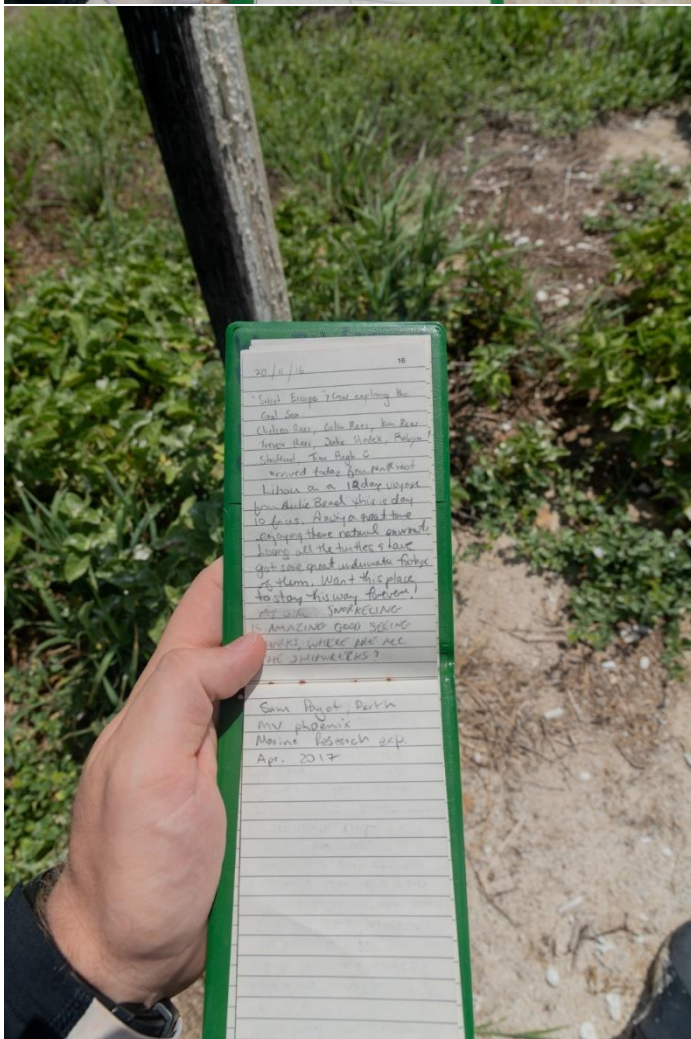 16
20/11/16
"Sweet Escape" crew exploring the
Coral Sea
Chelsea Rees, Colin Rees, Rees
Trevor Rees, Jake Hladek, Robyn
Stafford Tim Pugh
arrived today from
Lihou on a 12 day voyage
from Airlie Beach this is day
10 for us. Having a great time
enjoying these natural
loving all the turtles & have
got some great underwater footage
of them. Want this place
to stay this way forever!
SNORKELING
IS AMAZING GOOD SEEING
WHERE ARE ALL
THE SHIPWRECKS?
Sam Payot, Perth
MV phoenix
Marine Research exp.
Apr. 2017